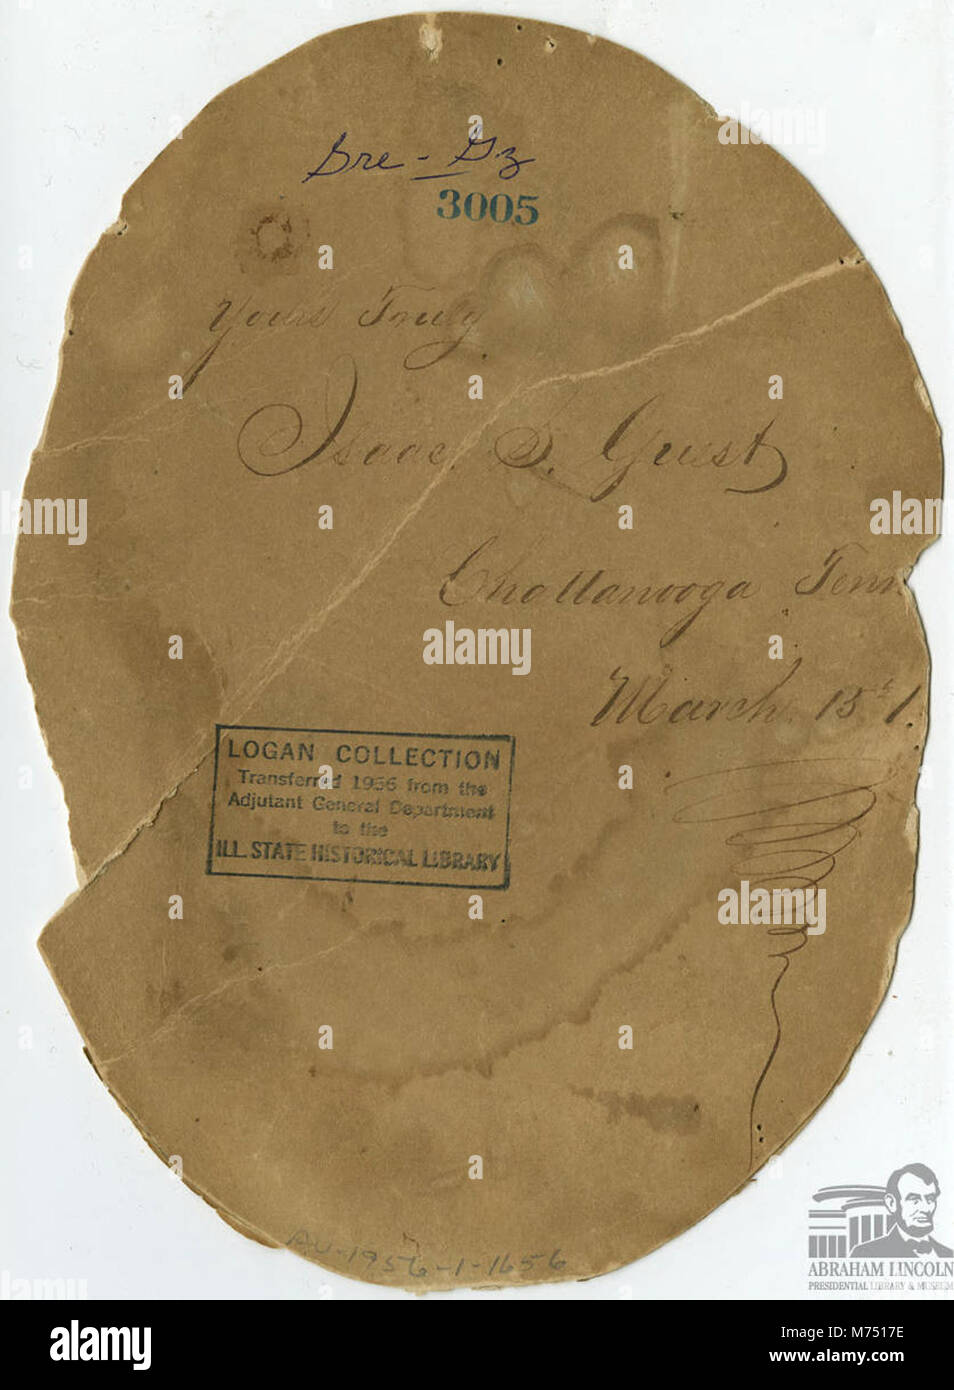 Gre - Gz
3005
Yours Truly
Isaac S. Guest
Chattanooga Tenn
March 15th 1
LOGAN COLLECTION
Transferred 1956 from the
Adjutant General Department
to the
ILL. STATE HISTORICAL LIBRARY
AV-1956-1-1656
ABRAHAM LINCOLN
PRESIDENTIAL LIBRARY & MUSEUM
alamy
Image ID: M7517E
www.alamy.com